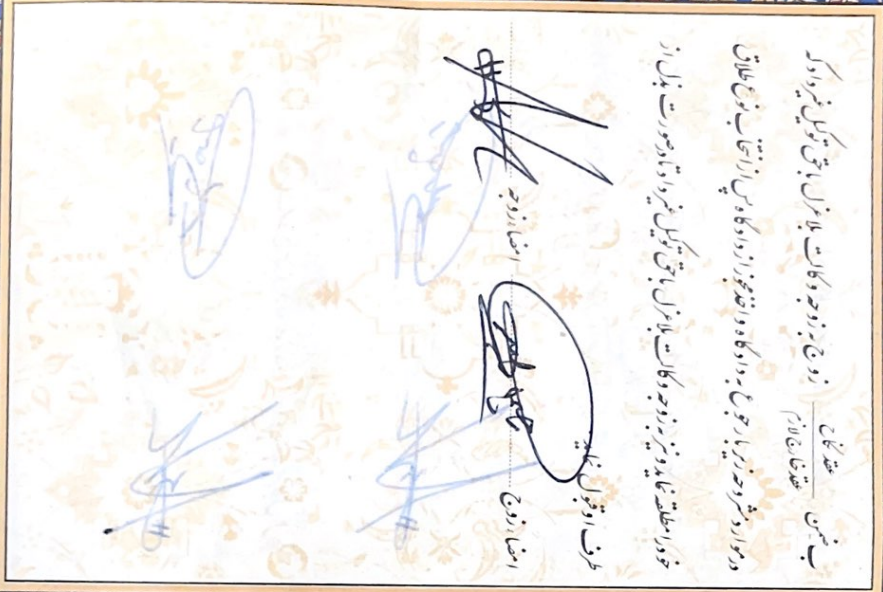 ب - ضمن عقد نکاح / عقد خارج لازم زوج به زوجه وکالت بلاعزل با حق توکیل غیر داد که
در موارد مشروحه زیر با رجوع به دادگاه و اخذ مجوز از دادگاه پس از انتخاب نوع طلاق
خود را مطلقه نماید و نیز به زوجه وکالت بلاعزل با حق توکیل غیر داد تا در صورت بذل از
طرف او قبول نماید
امضاء زوج امضاء زوجه